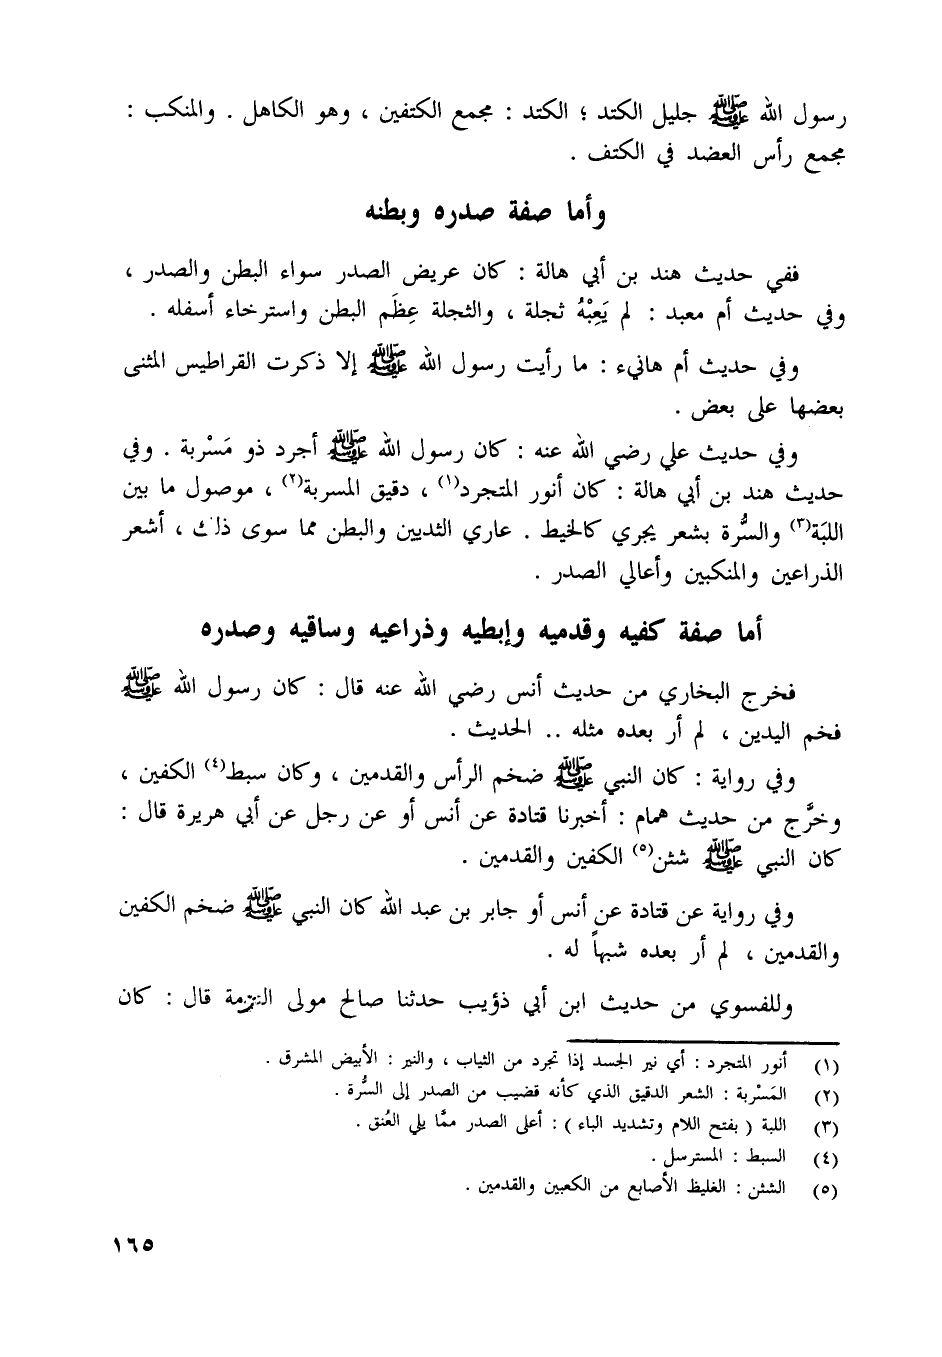 رسول الله ﷺ جليل الكتد ؛ الكتد : مجمع الكتفين ، وهو الكاهل . والمنكب :
مجمع رأس العضد في الكتف .
وأما صفة صدره وبطنه
ففي حديث هند بن أبي هالة : كان عريض الصدر سواء البطن والصدر ،
وفي حديث أم معبد : لم يَعِبْهُ ثجلة ، والثجلة عِظَم البطن واسترخاء أسفله .
وفي حديث أم هانيء : ما رأيت رسول الله ﷺ إلا ذكرت القراطيس المثنى
بعضها على بعض .
وفي حديث علي رضي الله عنه : كان رسول الله ﷺ أجرد ذو مَسْربة . وفي
حديث هند بن أبي هالة : كان أنور المتجرد(١) ، دقيق المسربة(٢) ، موصول ما بين
اللبَة(٣) والسُّرة بشعر يجري كالخيط . عاري الثديين والبطن مما سوى ذلك ، أشعر
الذراعين والمنكبين وأعالي الصدر .
أما صفة كفيه وقدميه وإبطيه وذراعيه وساقيه وصدره
فخرج البخاري من حديث أنس رضي الله عنه قال : كان رسول الله ﷺ
فخم اليدين ، لم أر بعده مثله .. الحديث .
وفي رواية : كان النبي ﷺ ضخم الرأس والقدمين ، وكان سبط(٤) الكفين ،
وخرَّج من حديث همام : أخبرنا قتادة عن أنس أو عن رجل عن أبي هريرة قال :
كان النبي ﷺ شثن(٥) الكفين والقدمين .
وفي رواية عن قتادة عن أنس أو جابر بن عبد الله كان النبي ﷺ ضخم الكفين
والقدمين ، لم أر بعده شبهاً له .
وللفسوي من حديث ابن أبي ذؤيب حدثنا صالح مولى قال : كان
(١) أنور المتجرد : أي نير الجسد إذا تجرد من الثياب ، والنير : الأبيض المشرق .
(٢) المَسْربة : الشعر الدقيق الذي كأنه قضيب من الصدر إلى السُّرة .
(٣) اللبة ( بفتح اللام وتشديد الباء ) : أعلى الصدر ممَّا يلي العُنق .
(٤) السبط : المسترسل .
(٥) الشثن : الغليظ الأصابع من الكعبين والقدمين .
١٦٥